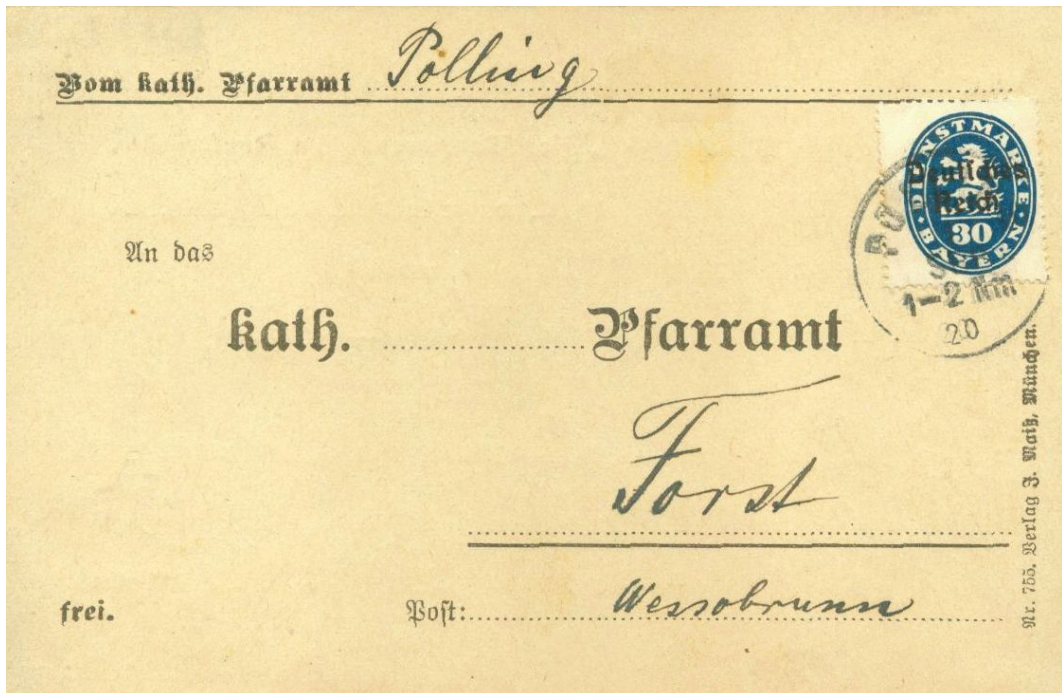 Vom kath. Pfarramt Polling
DIENSTMARKE
Deutsches
Reich
30
BAYERN
1-2 Nm
20
An das
kath. Pfarramt
Forst
frei. Post: Wessobrunn
Verlag J. München.